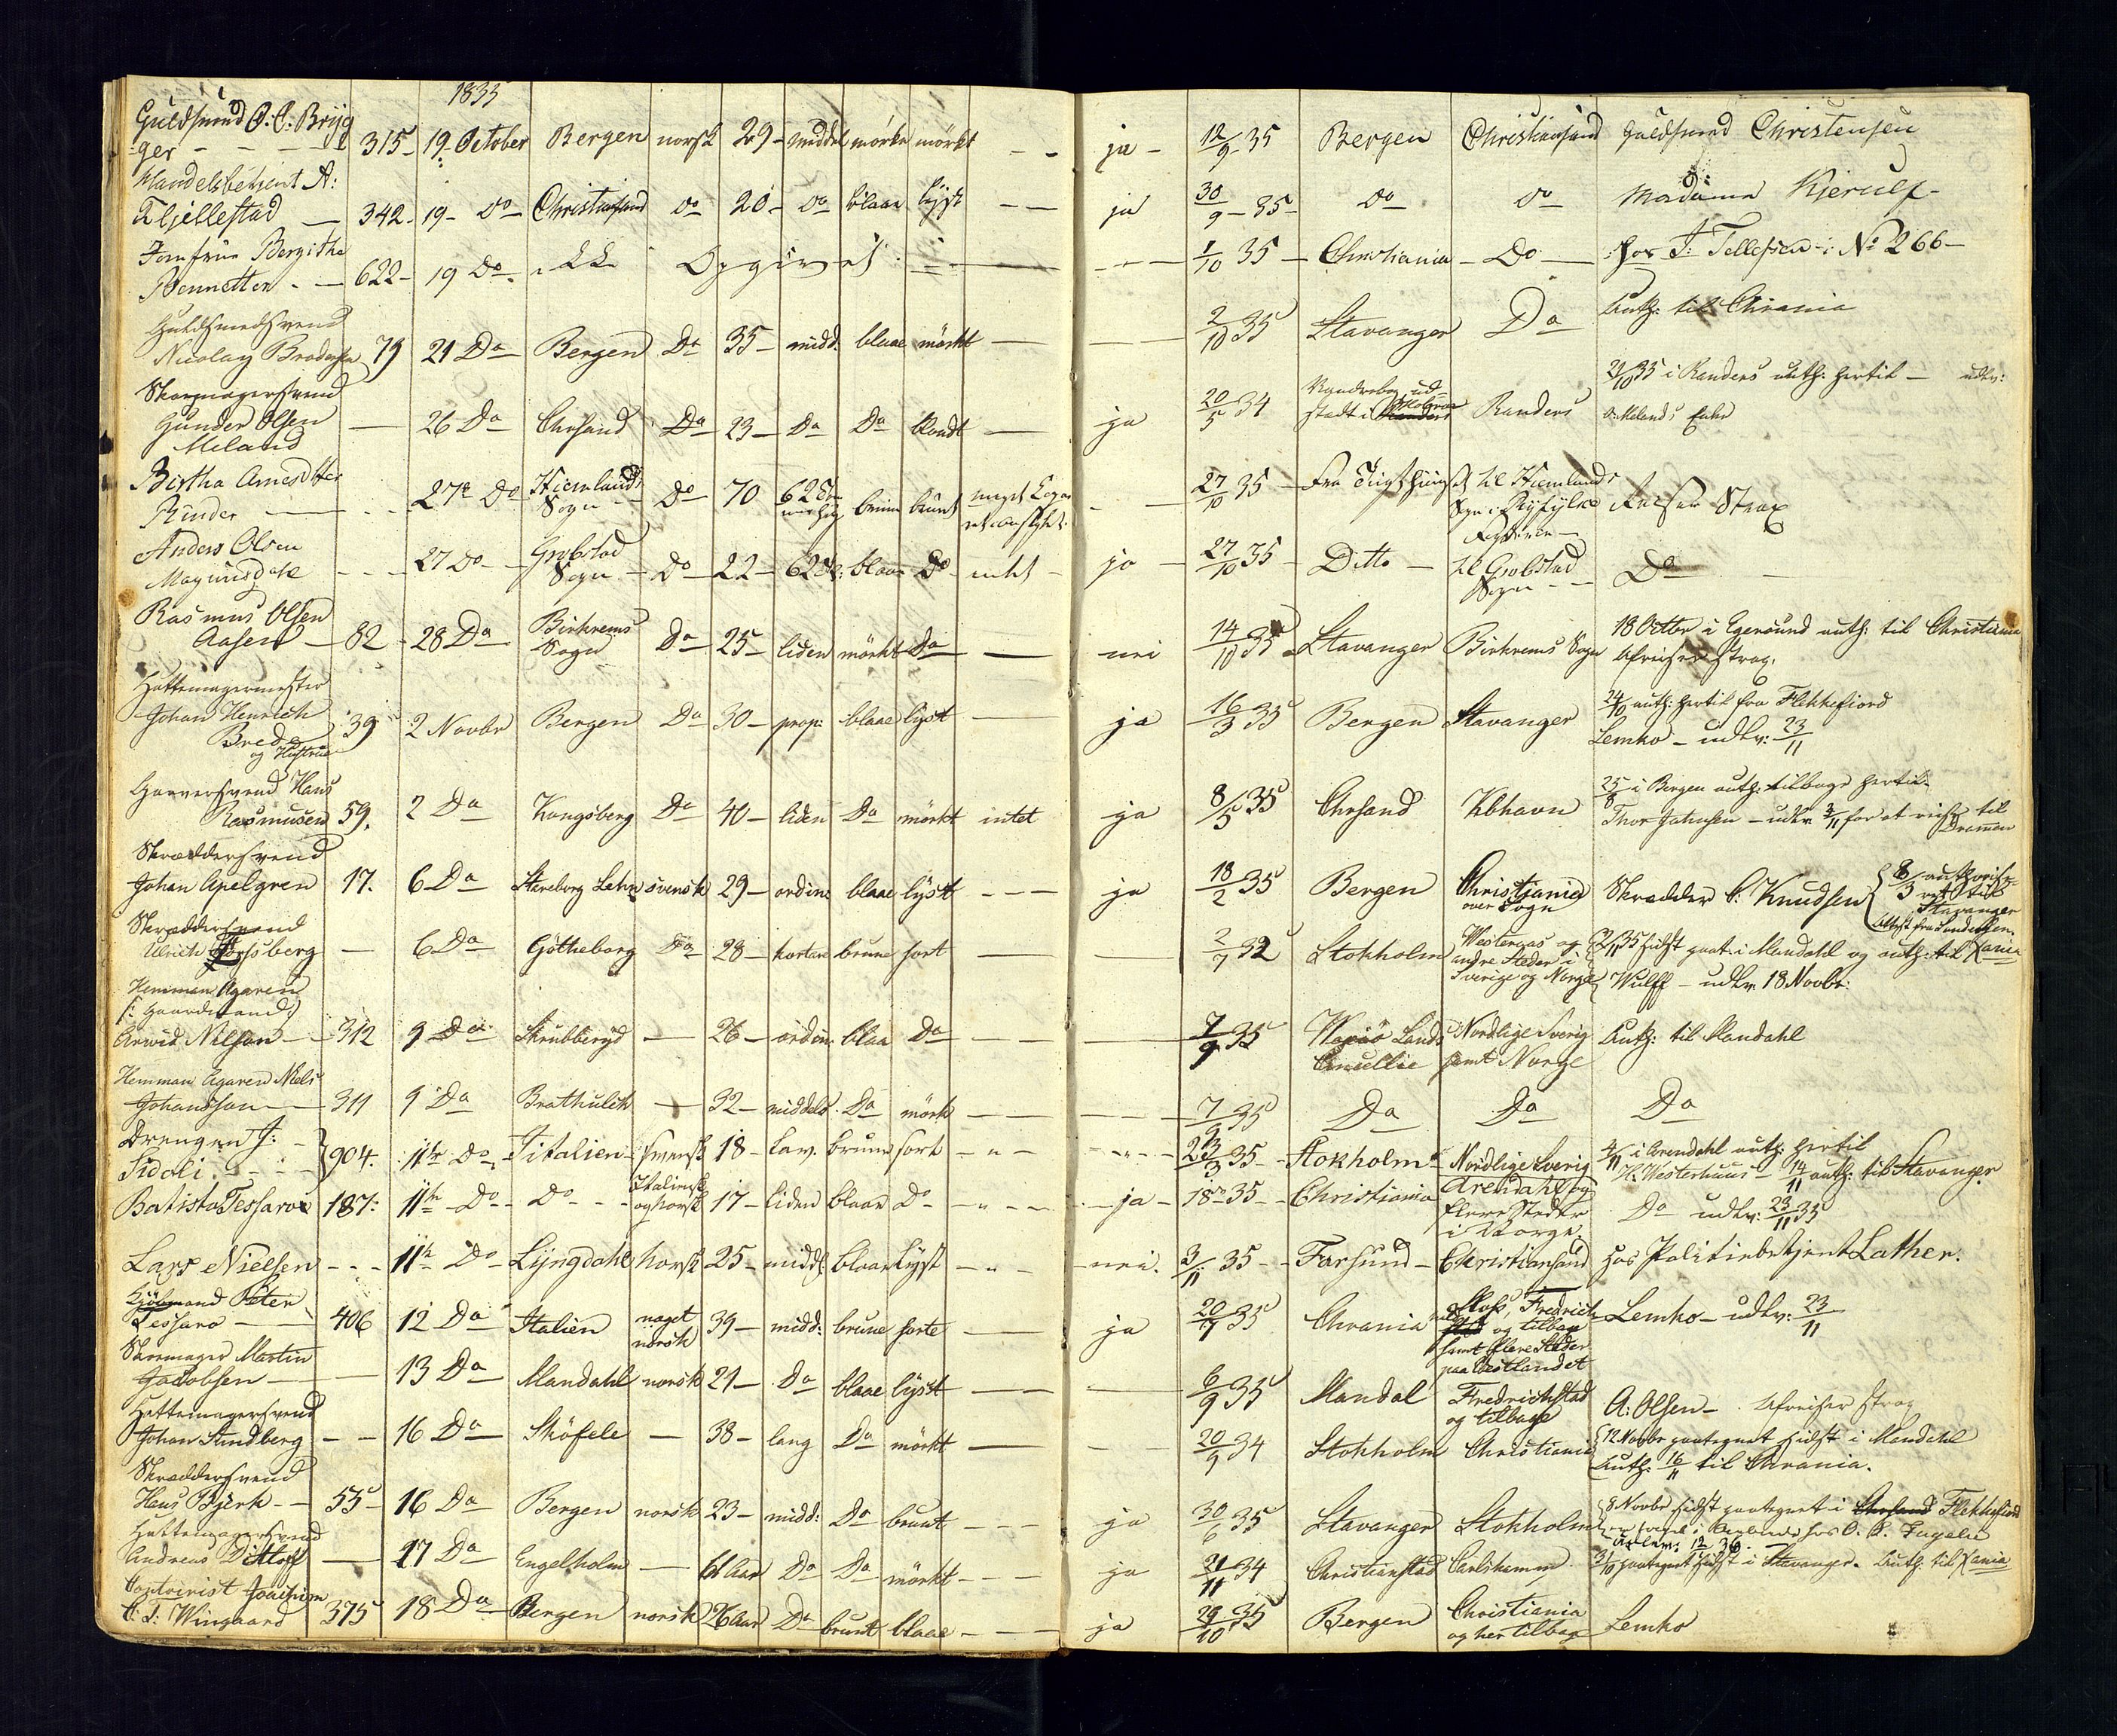 1835
Guldsmed O: C: Bryg
ger - - - 315 - 19 October Bergen norsk 29 - middel mørke mørkt - - ja - 12/9 35 Bergen Christiansand Guldsmed Christensen
Handelsbetjent A:
Fjellestad - 342 - 19 - Do - Christiansand do 20 - Do blaae lyst - - ja 30/9 - 35 - do do Madame Kjerulf -
Jomfrue Bergithe
Bennetter - - 622 - 19 Do - Opgivet - - 1/10 35 - Christiania - Do - hos T: Tellefsen i No 266 -
Guldsmedsvend
Nicolay Brodersen 79 21 Da Bergen Da 35 - midd: blaae mørkt - - 2/10 35 Stavanger Da Auth: til Chrania
Skomagersvend
Gunder Olsen
Meland - 26 Da Chrsand Da 23 - Da Da blondt - ja 20/5 34 Vandrebog ud-
stedt i Randers 21/10 35 i Randers auth: hertil - udlv:
Birtha Arnesdtter
Rinder - - - 27de Do Hiemlands
Sogn Do 70 62 brune brunt meget - - 27/10 35 - Fra til Hiemlands
Sogn i Ryfylke Reiser Strax
Anders Olsen
- - - 27 Do - Sogn - Do - 22 - blaae Do intet - ja - 27/10 35 - Ditto - til
Sogn - - Do -
Rasmus Olsen
Aasen - 82 - 28 Da Birkrems
Sogn Da 25 - liden mørkt Da - nei 14/10 35 Stavanger Birkrems Sogn 18 Octbr i Egersund auth: til Christiania
Afreiser strax.
Hattemagermester
Johan Henrich
Brede
og Hustrue 39 2 Novbr Bergen Da 30 - prop: blaae lyst - ja 16/3 35 Bergen Stavanger 24/10 auth: hertil fra Flekkefiord
Lemko - udlv: 23/11
Garversvend Hans
Rasmusen 59. 2 Da Kongsberg Da 40 - liden Da mørkt intet ja 8/5 35 Chrsand Kbhavn 25/8 i Bergen auth: tilbage hertil
Thor Jahnsen - udlv 3/11 for at reise til
Drammen
Skræddersvend
Johan Apelgren 17. 6 Da Lehn svensk 29 - ordine blaae lyst - - - ja 18/2 35 Bergen Christiania
over Sogn Skrædder C: Knudsen 8/3 auth
til
Stavanger
Skræddersvend
Ulrich - 6 Da Götheborg Da 28 - kortare brune sort - - 2/7 32 Stokholm Westeraas og
andre Steder i
Sverige og Norge 3/11 35 sidst paat: i Mandahl og auth: til Xania
Wulff - udlv 18 Novbr:
Hemman Agaren
(: Gaardmand:)
Arwid Nilsson - 312 9 Da Skrubberyd - 26 - ordin: blaa Da - - - 7/9 35 Wexiø Lands
Nordlige Sverig
samt Norge Auth: til Mandahl
Hemman Agaren Niels
Johansson - 311 9 Da Brathulth - 32 - middels Da mörk - - - 7/9 35 Da Da Da
Drengen J: -
Sidoli - - - 904. 11te Do - Fitalien - svensk 18 - brune sort - " - - " - 23/3 35 - Stokholm - Nordlige Sverig 4/11 i Arendahl auth: hertil
H: Westerhuus - 14/11 auth: til Stavanger
Batista Tessaroe 187: 11te - Do - Do - - Italiensk
og norsk 17 - liden blaae Do - - " - - ja - 18 35 - Christiania Arendahl og
flere Steder
i Norge. Do udlv: 23/11 35
Lars Nielsen - - - 11te Do Lyngdahl norsk 25 - midd: blaae lyst - " - nei. 3/11 35 - - Farsund - Christiansand hos Politiebetjent Lather.
Kjöbmand Peter
Tessaro - 406 12 Da Italien noget
norsk 39 - midd: brune sorte - ja 20/7 35 Chrania Moss, Fredrich-
stad og tilbage
samt flere Steder
paa Vestlandet Lemko - udlv: 23/11
Skomager Martin
Jacobsen - 13 Da Mandahl norsk 21 - Da blaae lyst - - 6/9 35 Mandal Fredrichstad
og tilbage A: Olsen - Afreiser strax
Hattemagersvend
Johan Sundberg - - 16 Da Sköfele - 38 - lang Da mørkt - - 20/9 34 Stokholm Christiania 12 Novbr paategnet sidst i Mandahl
Auth: 16/11 til Chrania.
Skræddersvend
Hans Bjerk - - 55 - 16 Da Bergen norsk 23 - midd: Da brunt - - - ja 30/6 35 Stavanger Stokholm 8 Novbr sidst paategnet i Chrsand Flekkefiord
Hattemagersvend
Andreas Dittloff - 17 Da Engelholm - 61 Aar Da Da mørkt - - - ja 21/11 34 Christianstad Carlshamn 31/10 paategnet sidst i Stavanger. Auth: til Xania
Contoirist Joachim
C: T: Wingaard 375 18 Da Bergen norsk 26 Aar Da brunt blaae - - - ja 29/10 35 Bergen Christiania
og her tilbage Lemko